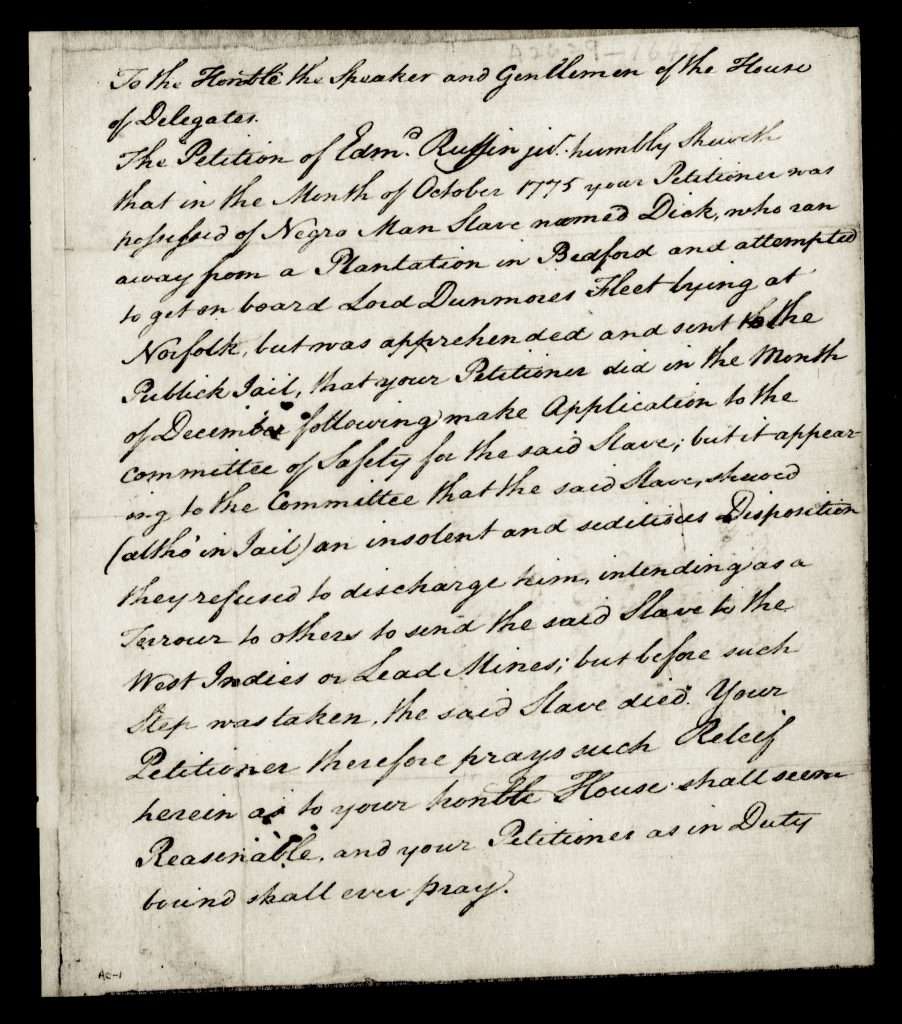 To the Honble the Speaker and Gentlemen of the House
of Delegates.
The Petition of Edmd. Ruffin junr. humbly Sheweth
that in the Month of October 1775 your Petitioner was
possessed of Negro Man Slave named Dick, who ran
away from a Plantation in Bedford and attempted
to get on board Lord Dunmores Fleet lying at
Norfolk, but was apprehended and sent to the
Publick Jail, that your Petitioner did in the Month
of December following make Application to the
Committee of Safety for the said Slave; but it appear-
ing to the Committee that the said Slave, shewed
(altho' in Jail) an insolent and seditious Disposition
they refused to discharge him, intending as a
Terrour to others to send the said Slave to the
West Indies or Lead Mines; but before such
Step was taken, the said Slave died. Your
Petitioner therefore prays such Releif
herein as to your honble House shall seem
Reasonable, and your Petitioner as in Duty
bound shall ever pray.
AC-1